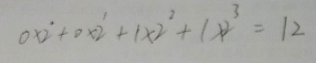 0×2⁰+0×2¹+1×2²+1×2³=12